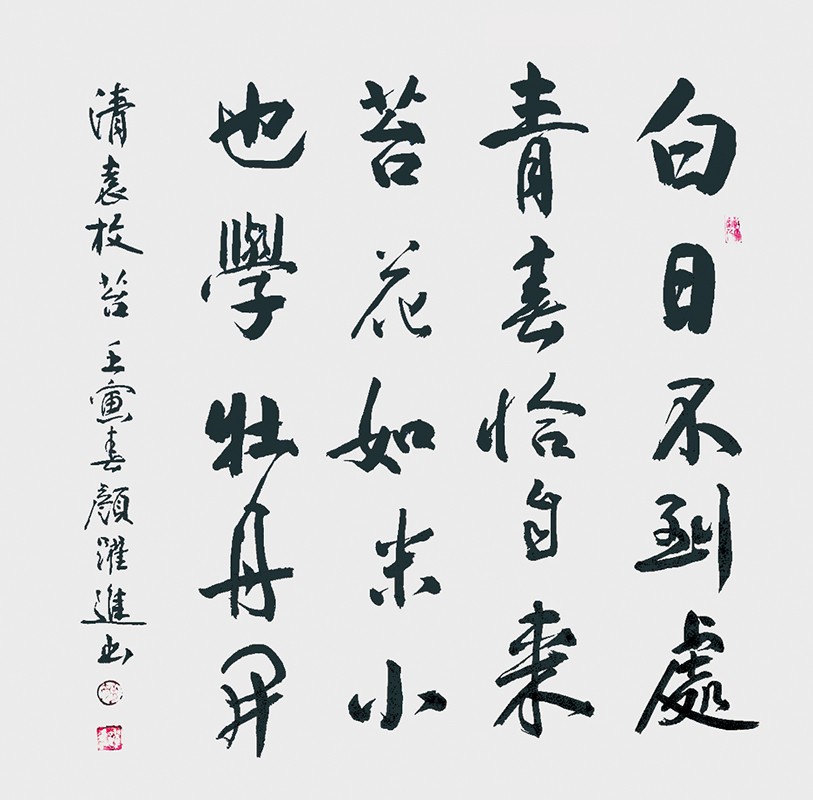 白日不到處
青春恰自來
苔花如米小
也學牡丹開
清袁枚苔 壬寅春顏躍進书